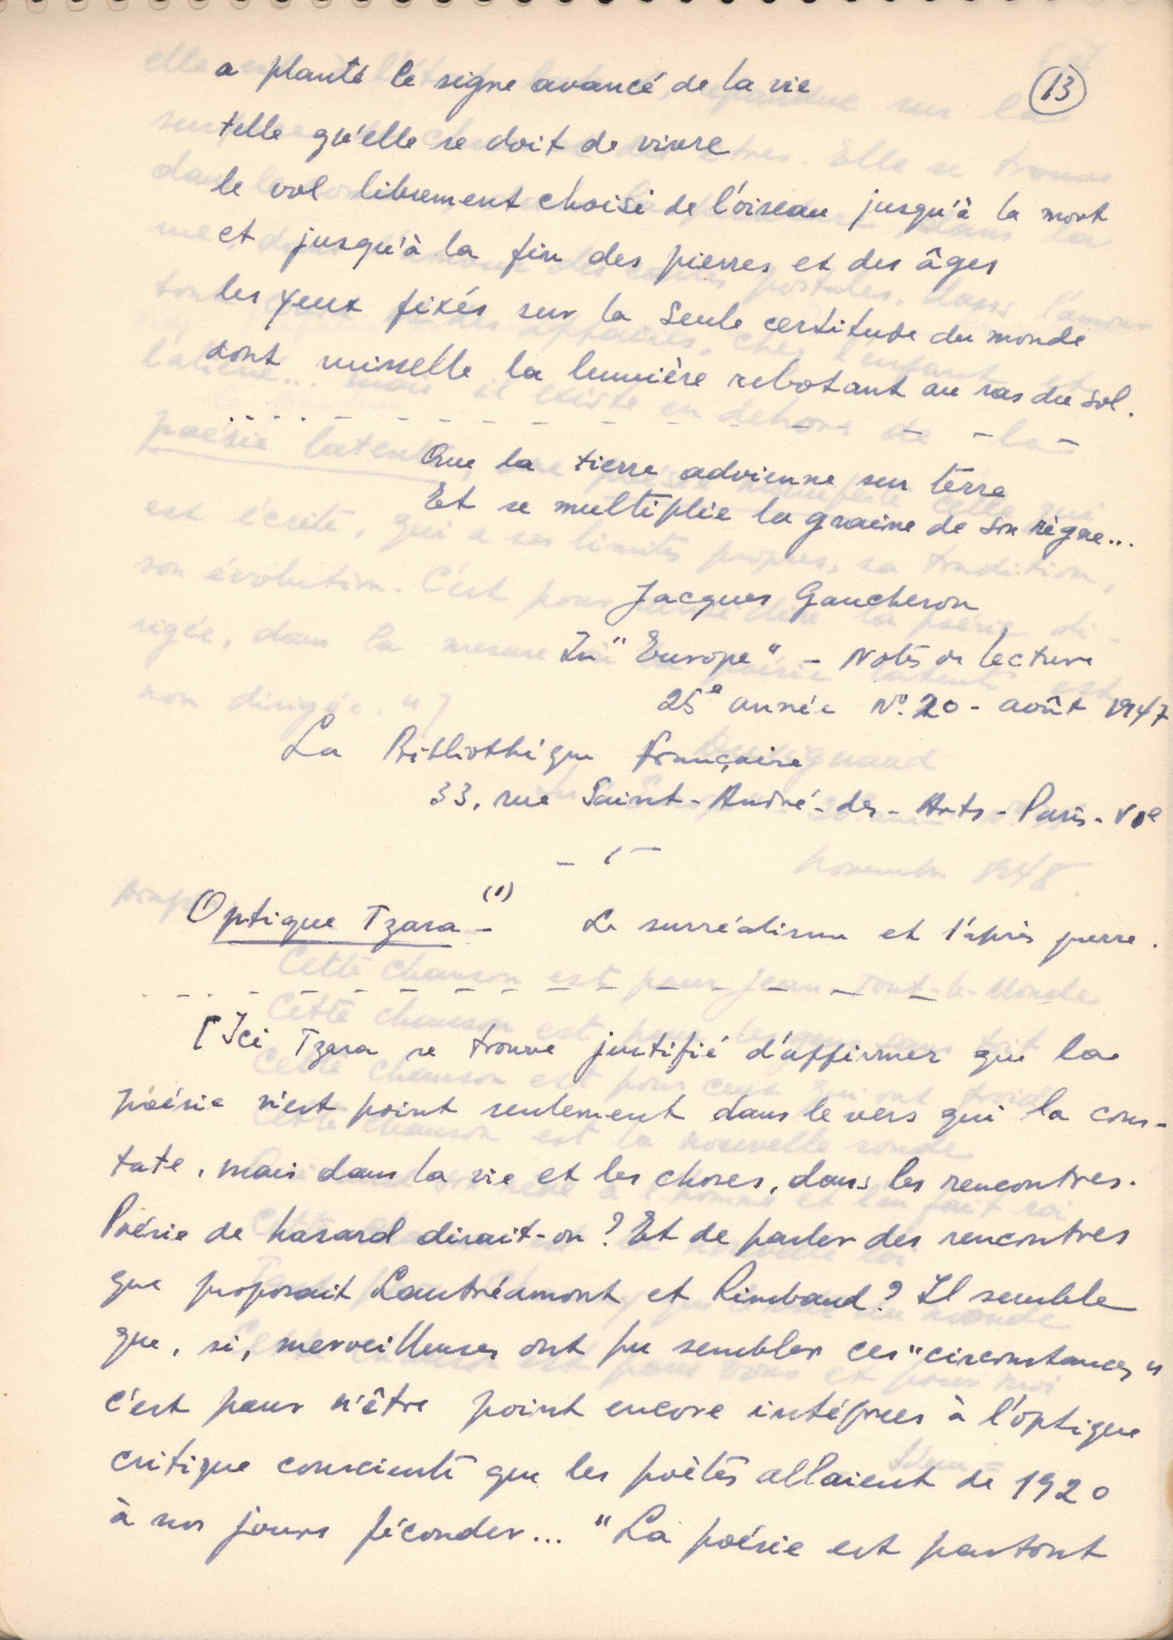 13
a planté le signe avancé de la vie
telle qu'elle se doit de vivre
le vol librement choisi de l'oiseau jusqu'à la mort
et jusqu'à la fin des pierres et des âges
les yeux fixés sur la seule certitude du monde
dont ruisselle la lumière rebotant au ras du sol.
Que la tierre advienne sur terre
Et se multiplie la graine de son règne...
Jacques Gaucheron
In "Europe" - Notes de lecture
25e année No. 20 - août 1947
La Bibliothèque française
33, rue Saint-André-des-Arts-Paris-VIe
Optique Tzara - (1) Le surréalisme et l'après guerre.
[Ici Tzara se trouve justifié d'affirmer que la
poésie n'est point seulement dans le vers qui la cons-
tate, mais dans la vie et les choses, dans les rencontres.
Poésie de hasard dirait-on? Et de parler des rencontres
que proposait Lautréamont et Rimbaud? Il semble
que, si, merveilleuses ont pu sembler ces "circonstances"
c'est pour n'être point encore intégrées à l'optique
critique consciente que les poètes allaient de 1920
à nos jours féconder... "La poésie est partout